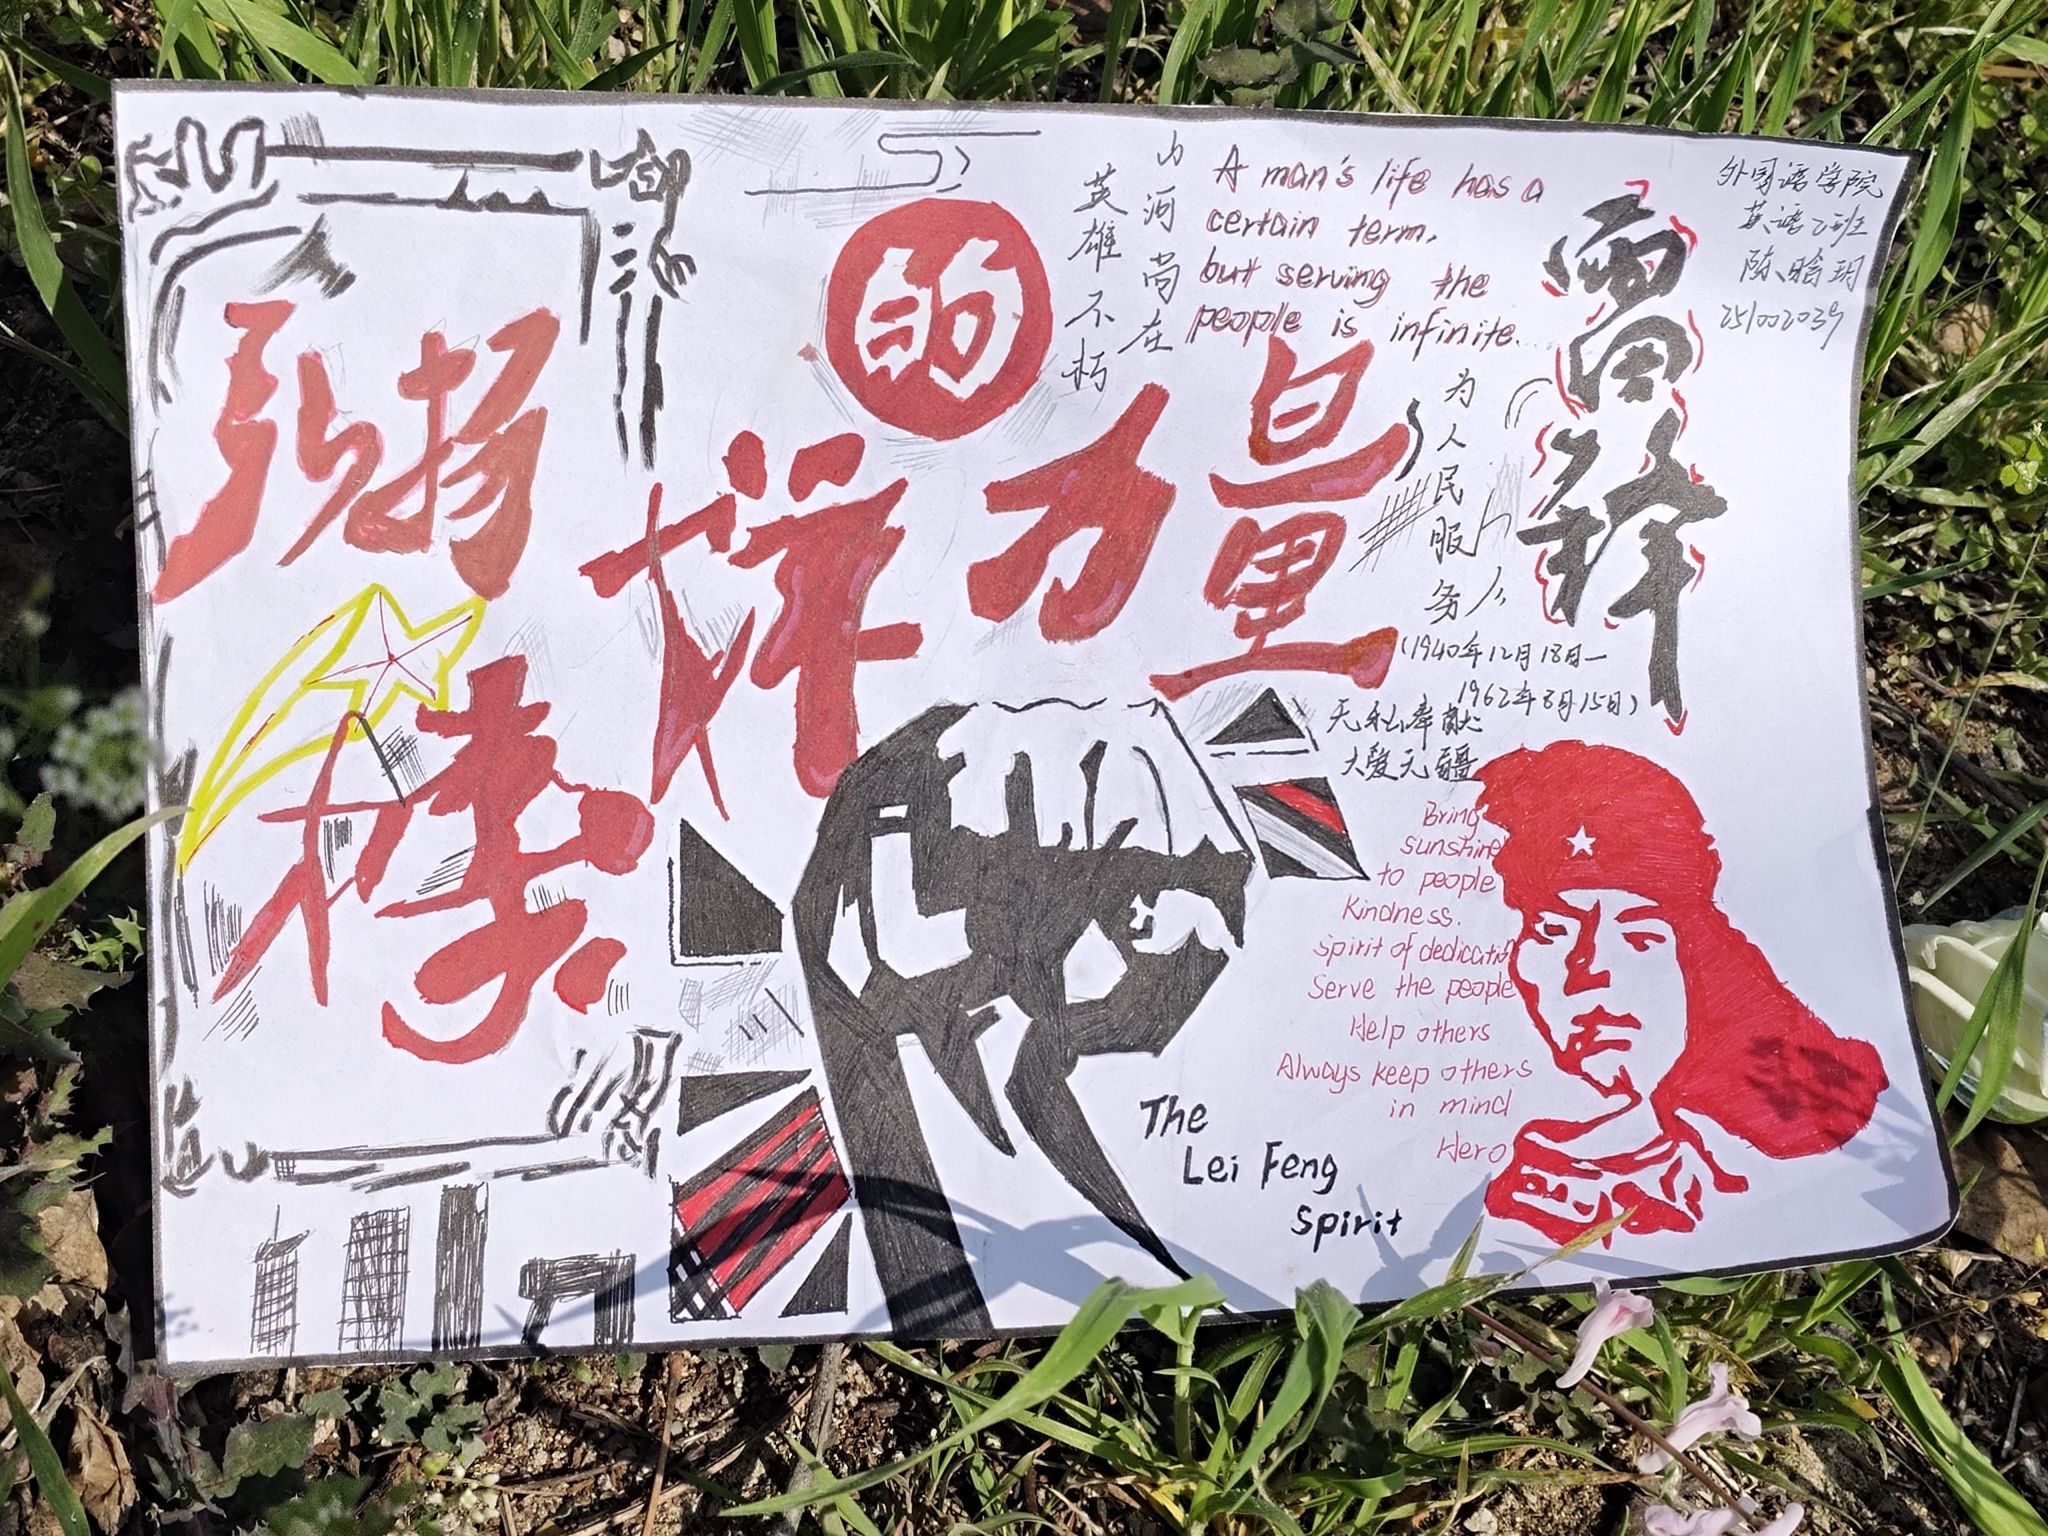 弘扬
榜样
的
力量
英雄不朽
山河尚在
A man's life has a
certain term,
but serving the
people is infinite.
雷锋
外国语学院
英语2班
陈晗玥
251002039
为人民服务
(1940年12月18日—
1962年8月15日)
无私奉献
大爱无疆
Bring
sunshine
to people
Kindness.
Spirit of dedication
Serve the people
Help others
Always keep others
in mind
Hero
The
Lei Feng
Spirit